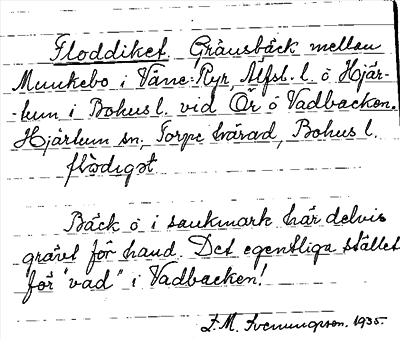 Floddiket. Gränsbäck mellan
Munkebo i Väne-Ryr, Älfsb. l. o Hjär-
-tum i Bohus l. vid Ör o Vadbacken.
Hjärtum sn, Torpe härad, Bohus l.
flòdigət
Bäck ò i sankmark här delvis
grävt för hand. Det egentliga stället
för "vad" i Vadbacken!
F. M. Svenungson. 1935.